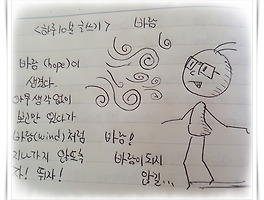 <하루10분 글쓰기> 바람
바람 (hope)이
생겼다.
아무생각없이
보고만 있다가
바람(wind)처럼 바람!
지나가지 않도록 바람이 되지
자! 뛰자! 않길...